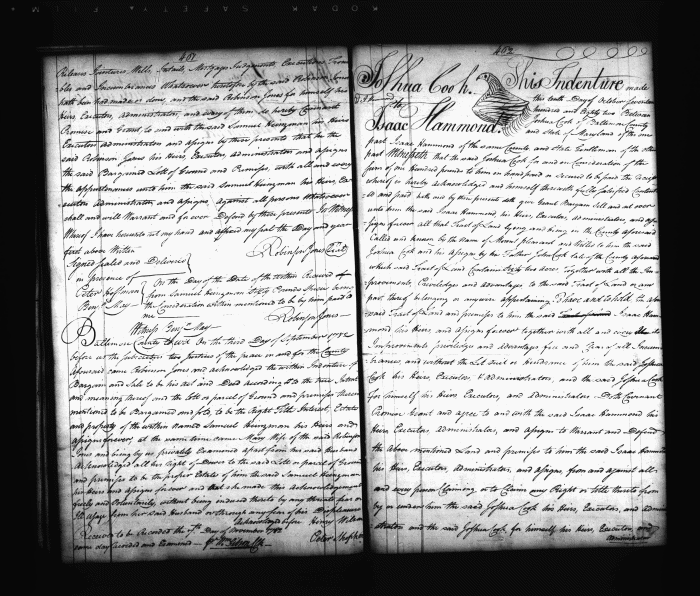 KODAK SAFETY FILM
461
Releases Jointures Wills Intails Mortgages Judgements Executions Trou
bles and Incumbrances Whatsoever heretofore by the said Robinson Jones
hath been had made or done, and the said Robinson Jones for himself his
Heirs, Executors, administrators, and every of them do hereby Covenant
Promise and Grant to and with the said Samuel Heringman his Heirs
Executors administrators and assigns by these presents that he the
said Robinson Jones his Heirs, Executors, administrators and assigns
the said Bargained Lott of Ground and Premises, with all and every
the appurtenances unto him the said Samuel Heringman his Heirs, Exe
cutors administrators and assigns, against all persons Whatsoever
shall and will Warrant and for ever Defend by these presents In Witness
Whereof I have hereunto set my hand and affixed my seal the Day and year
first above Written
Signed sealed and Delivered
in presence of
Robinson Jones (Seal)
Peter Hoffman
Benjn. May
On the Day of the Date of the within Received of
from Samuel Heringman Fifty Pounds Being
the Consideration within mentioned to be by him paid to
me
Robinson Jones
Witness Benjn. May
Baltimore County Sct. On the third Day of September 1782
before us the Subscribers two Justices of the peace in and for the County
aforesaid came Robinson Jones and acknowledged the within Indenture of
Bargain and Sale to be his act and Deed according to the true Intent
and meaning thereof and the Lott or parcel of Ground and premises therein
mentioned to be Bargained and sold, to be the Right Title Interest, Estate
and property of the within named Samuel Heringman his Heirs and
assigns forever, at the same time came Mary Wife of the said Robinson
Jones and being by us privately Examined apart from her said Husband
Acknowledged all her Right of Dower to the said Lott or parcel of Ground
and premises to be the proper Estate of him the said Samuel Heringman
his Heirs and Assigns for ever and that she made this acknowledgment
freely and Voluntarily without being induced thereto by any threats fear or
Ill usage from her said Husband or through any fear of his Displeasure
Acknowledged before Henry Wilson
Received to be Recorded the 7th Day of November 1782
same day Recorded and Examined
Peter Shepherd
462
Joshua Cook.
To
Isaac Hammond.
This Indenture made
this tenth Day of October Seventeen
hundred and Eighty two Between
Joshua Cook of Baltimore County
and State of Maryland of the one
part Isaac Hammond of the same County and State Gentleman of the other
part Witnesseth that the said Joshua Cook for and in Consideration of the
sum of One hundred pounds to him in hand paid or secured to be paid the receipt
whereof is hereby acknowledged and himself therewith fully satisfied Contented
and paid hath and by these presents doth give Grant Bargain Sell and set over
unto him the said Isaac Hammond his Heirs, Executors, administrators, and assi
gns forever all that Tract of Land lying and being in the County aforesaid
Called and known by the name of and Willed to him the said
Joshua Cook and his assigns by his Father John Cook late of the County aforesaid
which said Tract of Land Contains Sixty two acres Together with all the Im-
provements, Priviledges and advantages to the said Tract of Land or any
part thereof belonging or anywise appertaining To have and to hold the above
said Tract of Land and premises to him the said Isaac Ham
mond his Heirs and assigns forever together with all and every
Improvements priviledges and advantages free and Clear of all Incum
brances, and without the Let Suit or hinderance of him the said Joshua
Cook his Heirs, Executors, & administrators, and the said Joshua Cook
for himself his Heirs Executors, and administrators Doth Covenant
Promise Grant and agree to and with the said Isaac Hammond his
Heirs Executors, administrators, and assigns to Warrant and Defend
the above mentioned Land and premises to him the said Isaac Hammond
his Heirs, Executors, Administrators, and assigns from and against all
and every person Claiming or to Claim any Right or title thereto from
by or under him the said Joshua Cook his Heirs, Executors, and admini
strators and the said Joshua Cook for himself his Heirs, Executors, and
administrators